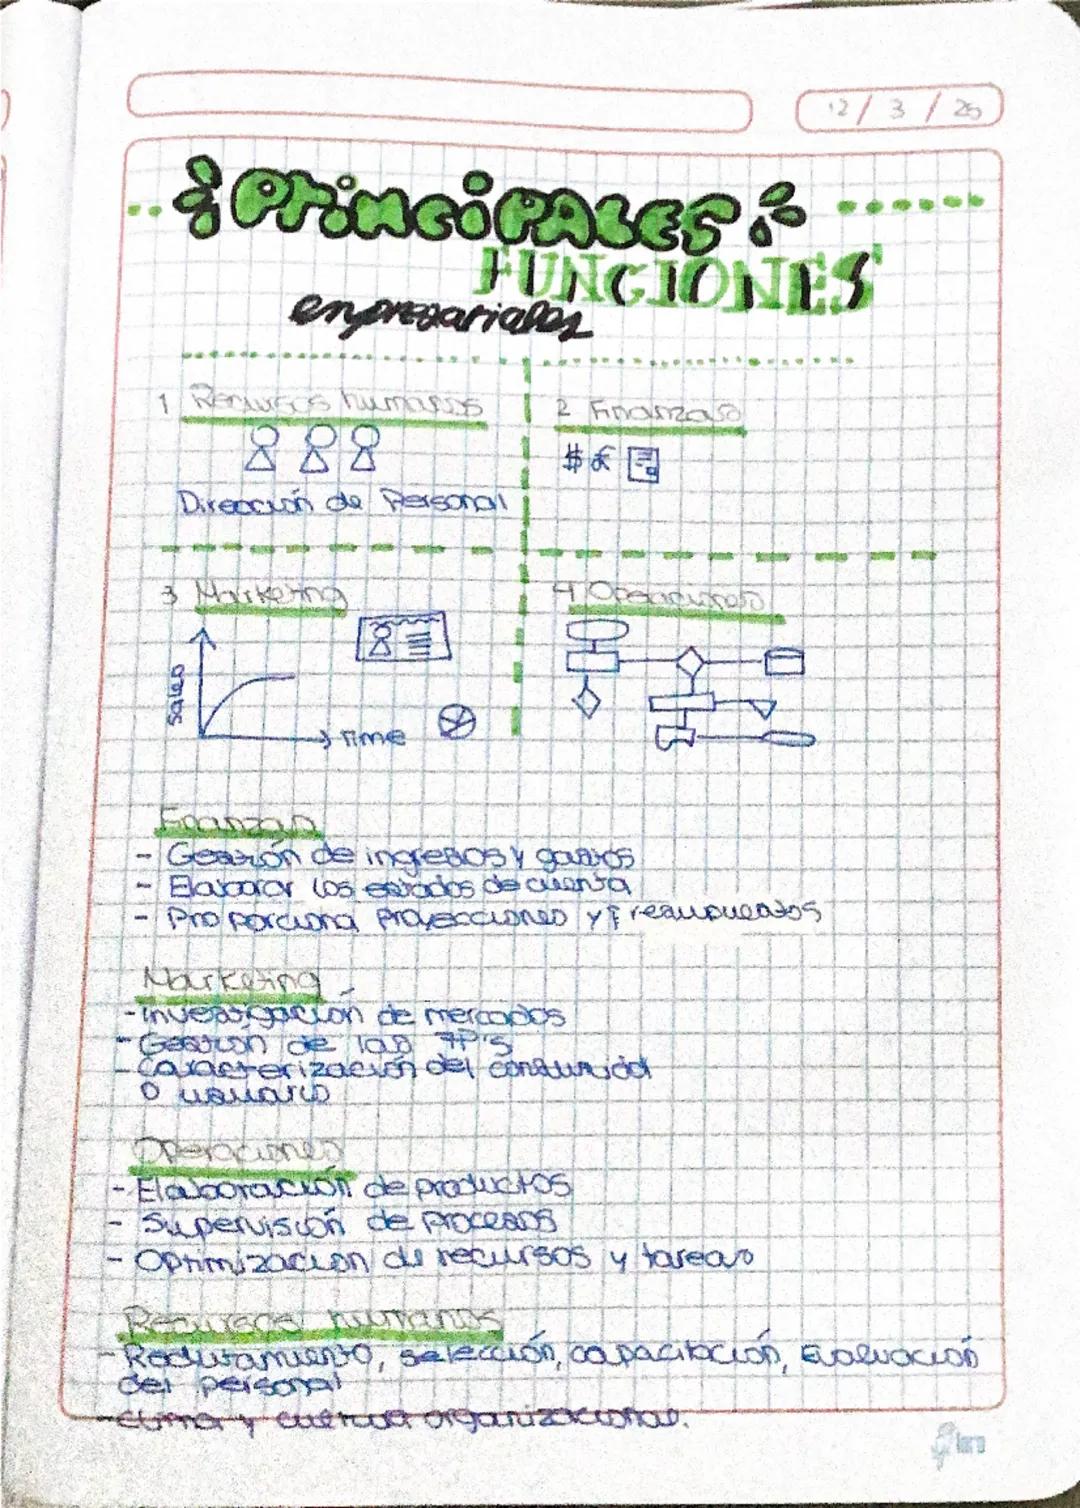 12/3/25
PRINCIPALES
FUNCIONES
enpresariales
1 Recursos humanos
2 Finanzas
$ €
Dirección de Personal
3 Marketing
4 Operaciones
Sales
Time
Finanzas
- Gestión de ingresos y gastos
- Elaborar los estados de cuenta
- Proporciona proyecciones y presupuestos
Marketing
- Investigación de mercados
- Gestión de las 7P's
- Caracterización del consumidor
o usuario
Operaciones
- Elaboración de productos
- Supervisión de procesos
- Optimización de recursos y tareas
Recursos humanos
- Reclutamiento, selección, capacitación, Evaluación
del personal
- Clima y cultura organizacional.